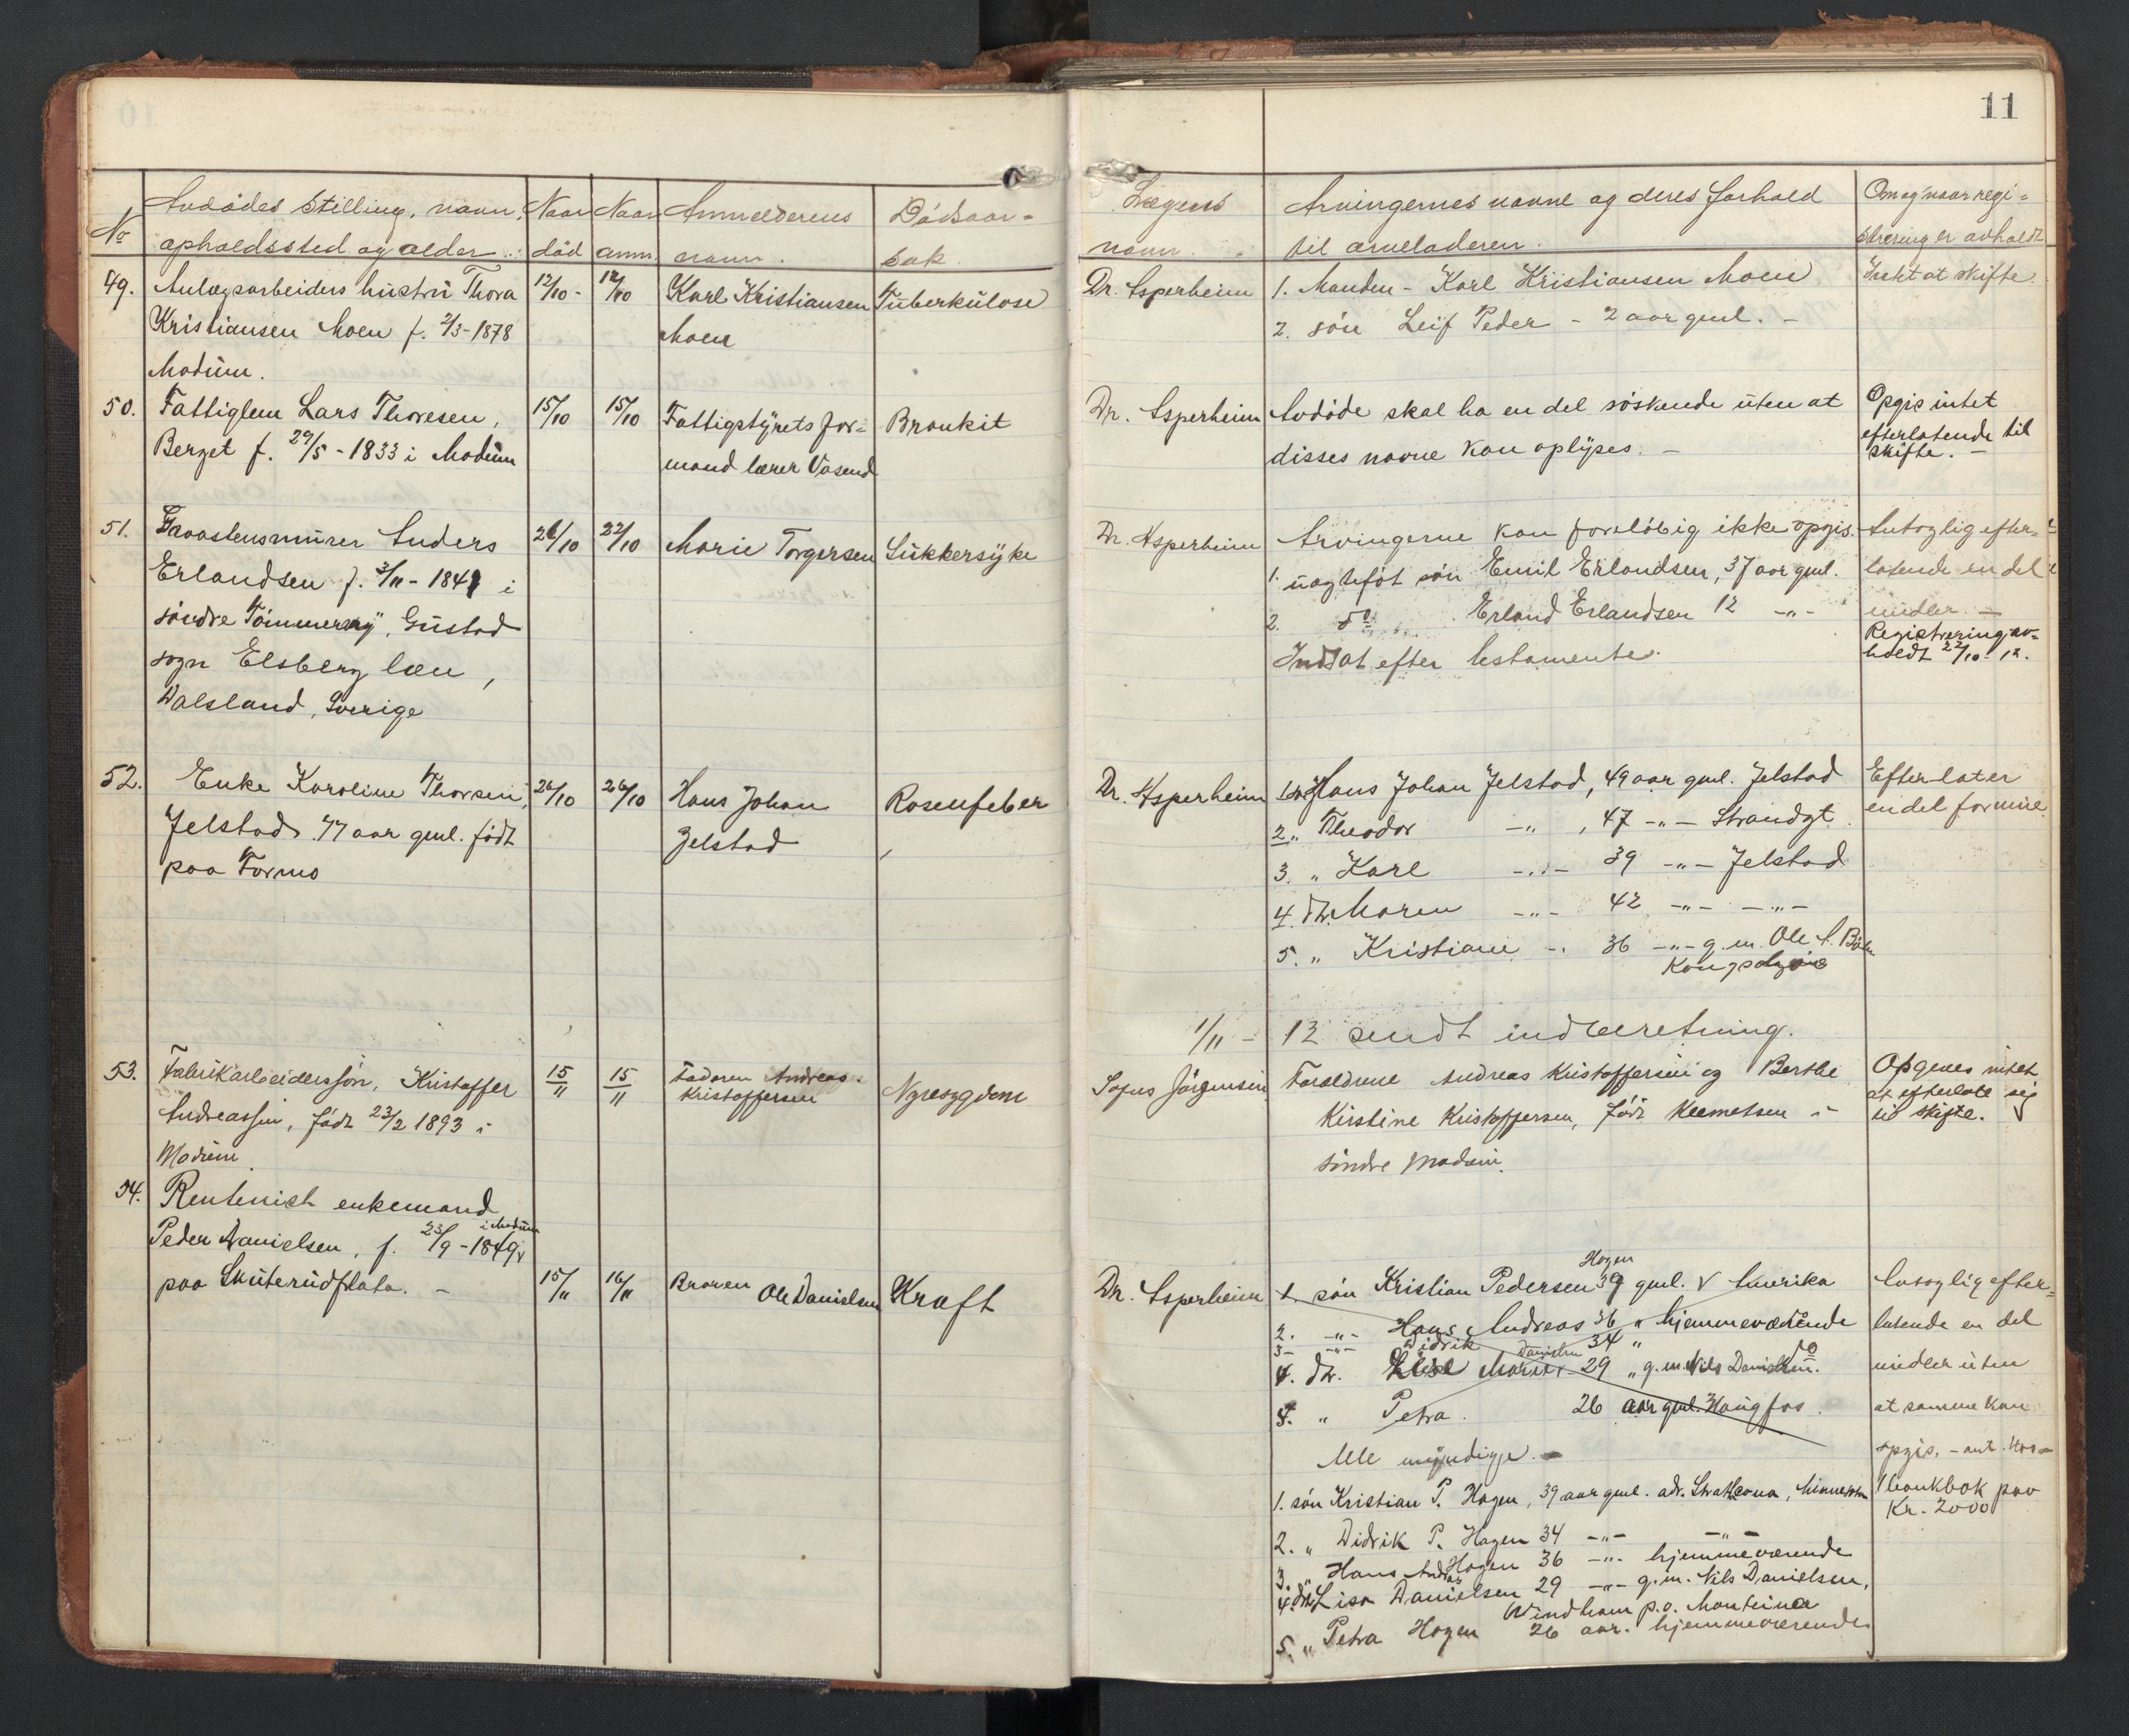 11
No
Avdödes stilling, navn,
opholdssted og alder.
Naar
död
Naar
anm.
Anmelderens
navn.
Dödsaar-
sak.
Lægens
navn.
Arvingernes navne og deres forhold
til arveladeren.
Om og naar regi-
strering er avholdt
49.
Anlægsarbeiders hustru Thora
Kristiansen Moen f. 2/3-1878
Modum.
12/10-
12/10
Karl Kristiansen
Moen
Tuberkulose
Dr. Asperheim
1. Manden - Karl Kristiansen Moen
2. sön Leif Peder - 2 aar gml. -
Intet at skifte.
50.
Fattiglem Lars Thoresen,
Berget f. 29/5-1833 i Modum
15/10
15/10
Fattigstyrets for-
mand lærer Vasend
Bronkit
Dr. Asperheim
Avdöde skal ha en del söskende uten at
disses navne kan oplyses. -
Opgis intet
efterlatende til
skifte. -
51.
Anders
Erlandsen f. 3/11-1841 i
söndre Tömmeräng, Gustad
sogn Elsberg læn,
Dalsland, Sverige
26/10
22/10
Marie Torgersen
Sukkersyke
Dr. Asperheim
Arvingerne kan foreløbig ikke opgis.
1. uegtefót sön Emil Erlandsen, 37 aar gml.
2. do Erland Erlandsen 12 -"-
Indsat efter testamente.
Antagelig efter-
latende en del
midler. -
Registrering av-
holdt 22/10-12.
52.
Enke Karoline Thorsen,
Jelstad 77 aar gml. födt
paa Formo
26/10
26/10
Hans Johan
Jelstad
Rosenfeber
Dr. Asperheim
1. sön Hans Johan Jelstad, 49 aar gml. Jelstad
2. " Theodor -"- , 47 -"- Strandgt.
3. " Karl -"- 39 -"- Jelstad
4. dtr. Maren -"- 42 -"- -"-
5. " Kristiane -" 36 -"- g.m. Ole A.
Efterlater
en del formue
1/11 - 12 sendt indberetning.
53.
Fabrikarbeiderssön, Kristoffer
Andreassen, född 23/2 1893 i
Modum
15/11
15/11
Faderen Andreas
Kristoffersen
Nyresygdom
Sofus Jörgensen
Foreldrene Andreas Kristoffersen og Berthe
Kirstine Kristoffersen, född Klemetsen i
söndre Modum.
Opgives intet
at efterlate sig
til skifte.
54.
Rentenist enkemand
Peder Danielsen, f. 23/9-1849 i Modum
paa Skuterudflata. -
15/11
16/11
Broren Ole Danielsen
Kræft
Dr. Asperheim
1. sön Kristian Pedersen Hagen 39 gml. v Amerika
2. -"- Hans Andreas 36 " hjemmeværende
3- -"- Didrik 34 "
4. dtr. Elise Marie Danielsen 29 " g.m. Nils Danielsen. do
5. " Petra. 26 aar gml. Haugfos.
Alle myndige. -
1. sön Kristian P. Hagen, 39 aar gml. adr. Strathcona, Minnesota
2. " Didrik P. Hagen 34 -"- -"-
3. " Hans Andreas Hagen 36 -"- hjemmeværende
4. dtr. Lisa Danielsen 29 -"- g.m. Nils Danielsen,
Windham p.o. Montana
5. " Petra Hagen 26 aar. hjemmeværende
Antagelig efter-
latende en del
midler uten
at samme kan
opgis. -
1 bankbok paa
Kr. 2000